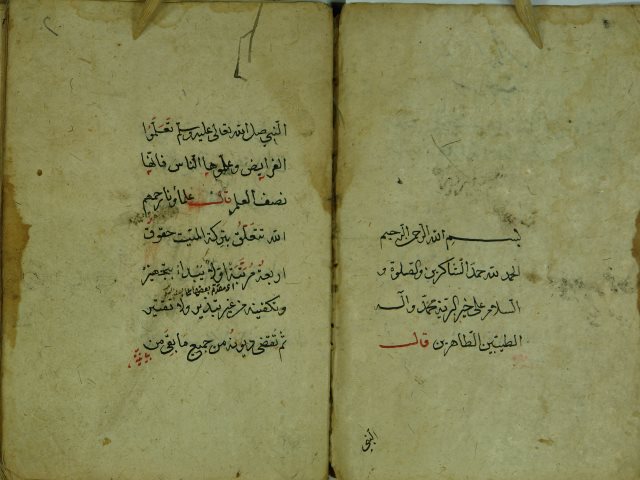 بسم الله الرحمن الرحيم
الحمد لله حمد الشاكرين والصلوة و
السلام على خير البرية محمد وآله
الطيبين الطاهرين قال
النبي
النبي صلى الله تعالى عليه وسلم تعلموا
الفرايض وعلموها الناس فانها
نصف العلم قال علماؤنا رحمهم
الله تتعلق بتركة الميت حقوق
اربعة مرتبة اولا يبتدأ بتجهيزه
وتكفينه من غير تبذير ولا تقتير
ثم تقضى ديونه من جميع ما بقى من